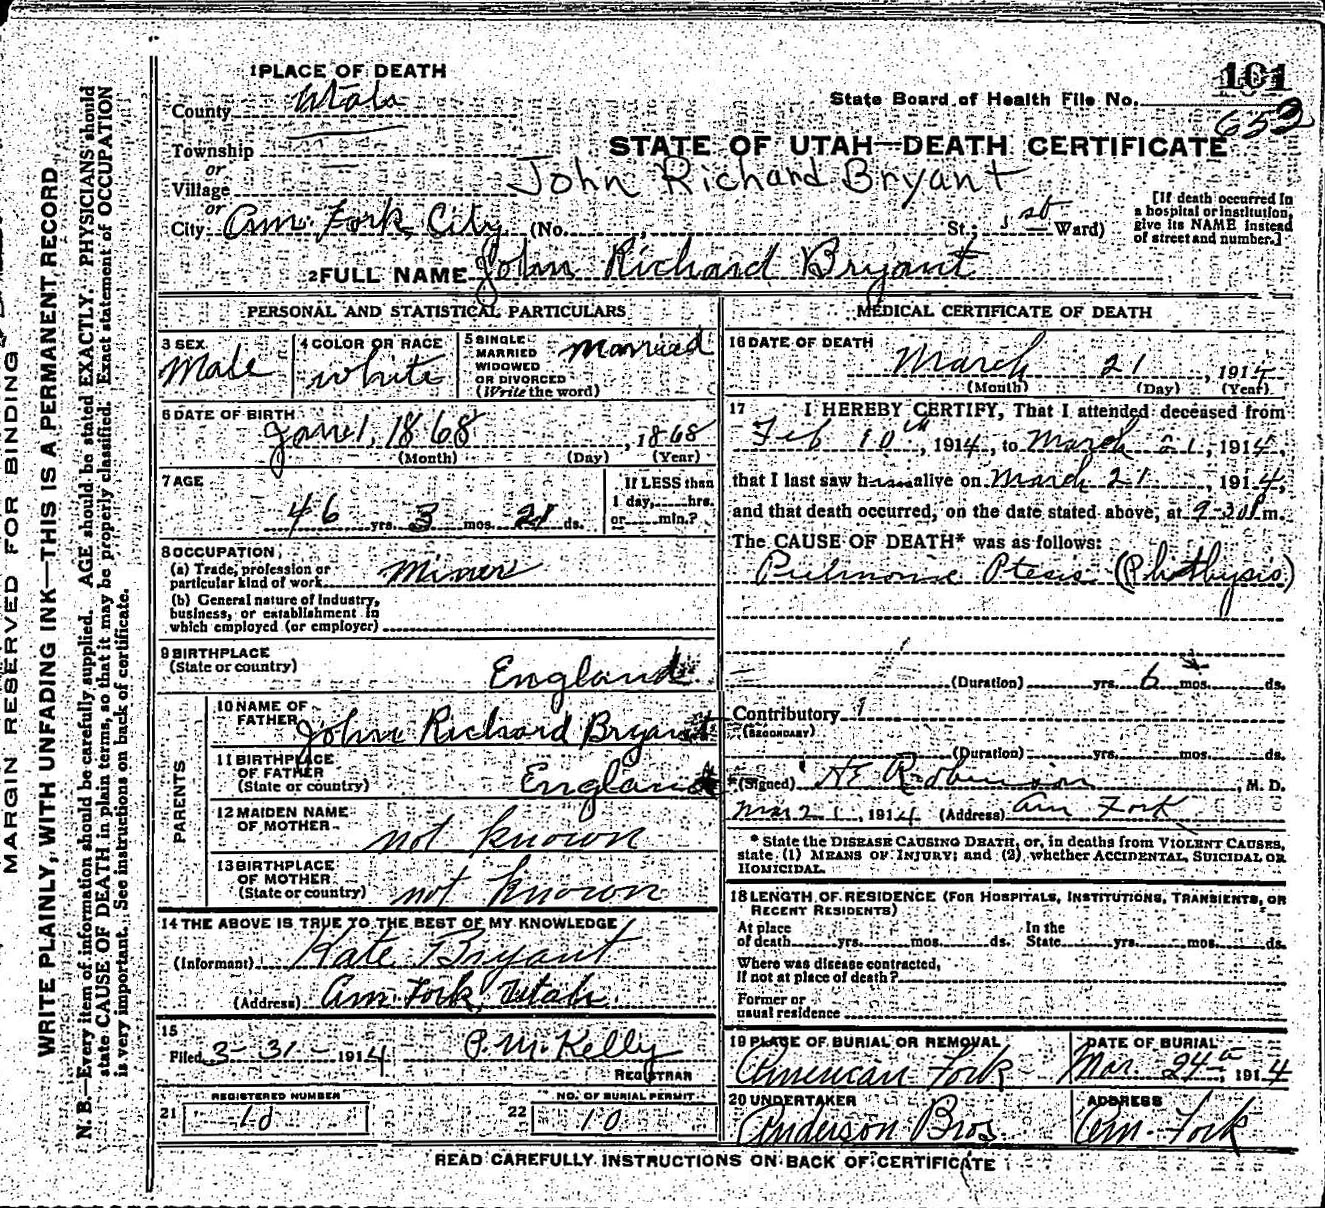 101
1 PLACE OF DEATH
State Board of Health File No.
653
County Utah
STATE OF UTAH—DEATH CERTIFICATE
Township
or
Village
John Richard Bryant
or
City Am. Fork City (No. St.; 1st Ward)
[If death occurred in
a hospital or institution,
give its NAME instead
of street and number.]
2 FULL NAME John Richard Bryant
PERSONAL AND STATISTICAL PARTICULARS
3 SEX
Male
4 COLOR OR RACE
white
5 SINGLE
MARRIED
WIDOWED
OR DIVORCED
(Write the word)
Married
6 DATE OF BIRTH
Jan 1, 1868, 1868
(Month) (Day) (Year)
7 AGE
46 yrs. 3 mos. 21 ds.
If LESS than
1 day, hrs.
or min.?
8 OCCUPATION
(a) Trade, profession or
particular kind of work Miner
(b) General nature of Industry,
business, or establishment in
which employed (or employer)
9 BIRTHPLACE
(State or country)
England
PARENTS
10 NAME OF
FATHER John Richard Bryant
11 BIRTHPLACE
OF FATHER
(State or country) England
12 MAIDEN NAME
OF MOTHER not known
13 BIRTHPLACE
OF MOTHER
(State or country) not known
14 THE ABOVE IS TRUE TO THE BEST OF MY KNOWLEDGE
(Informant) Kate Bryant
(Address) Am. Fork, Utah.
15
Filed 3-31-1914 P. M. Kelly
REGISTRAR
21 REGISTERED NUMBER
10
22 NO. OF BURIAL PERMIT
10
MEDICAL CERTIFICATE OF DEATH
16 DATE OF DEATH
March 21, 1914
(Month) (Day) (Year)
17 I HEREBY CERTIFY, That I attended deceased from
Feb 10th, 1914, to March 21, 1914,
that I last saw h alive on March 21, 1914,
and that death occurred, on the date stated above, at m.
The CAUSE OF DEATH* was as follows:
Pulmonie Ptesis (Phthysis)
(Duration) yrs. 6 mos. ds.
Contributory
(SECONDARY)
(Duration) yrs. mos. ds.
(Signed) H E Robinson, M. D.
Mar 21, 1914 (Address) Am Fork
* State the DISEASE CAUSING DEATH, or, in deaths from VIOLENT CAUSES,
state (1) MEANS OF INJURY; and (2) whether ACCIDENTAL, SUICIDAL OR
HOMICIDAL.
18 LENGTH OF RESIDENCE (FOR HOSPITALS, INSTITUTIONS, TRANSIENTS, OR
RECENT RESIDENTS)
At place
of death yrs. mos. ds.
In the
State yrs. mos. ds.
Where was disease contracted,
If not at place of death?
Former or
usual residence
19 PLACE OF BURIAL OR REMOVAL
American Fork
DATE OF BURIAL
Mar. 24th, 1914
20 UNDERTAKER
Anderson Bros.
ADDRESS
Am. Fork
READ CAREFULLY INSTRUCTIONS ON BACK OF CERTIFICATE
MARGIN RESERVED FOR BINDING
WRITE PLAINLY, WITH UNFADING INK—THIS IS A PERMANENT RECORD
N. B.—Every item of information should be carefully supplied. AGE should be stated EXACTLY. PHYSICIANS should
state CAUSE OF DEATH in plain terms, so that it may be properly classified. Exact statement of OCCUPATION
is very important. See instructions on back of certificate.